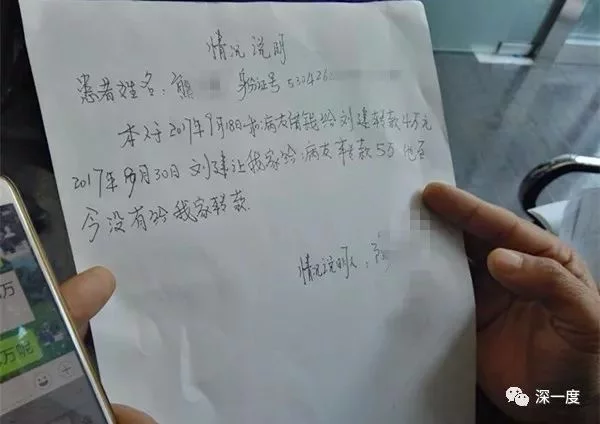 情况说明
患者姓名：熊 身份证号530426
本人于2017年9月18日和病友借钱给刘建转款4万元
2017年9月30日刘建让我家给病友转款5万他至
今没有给我家转款.
情况说明人：
万
万能
深一度